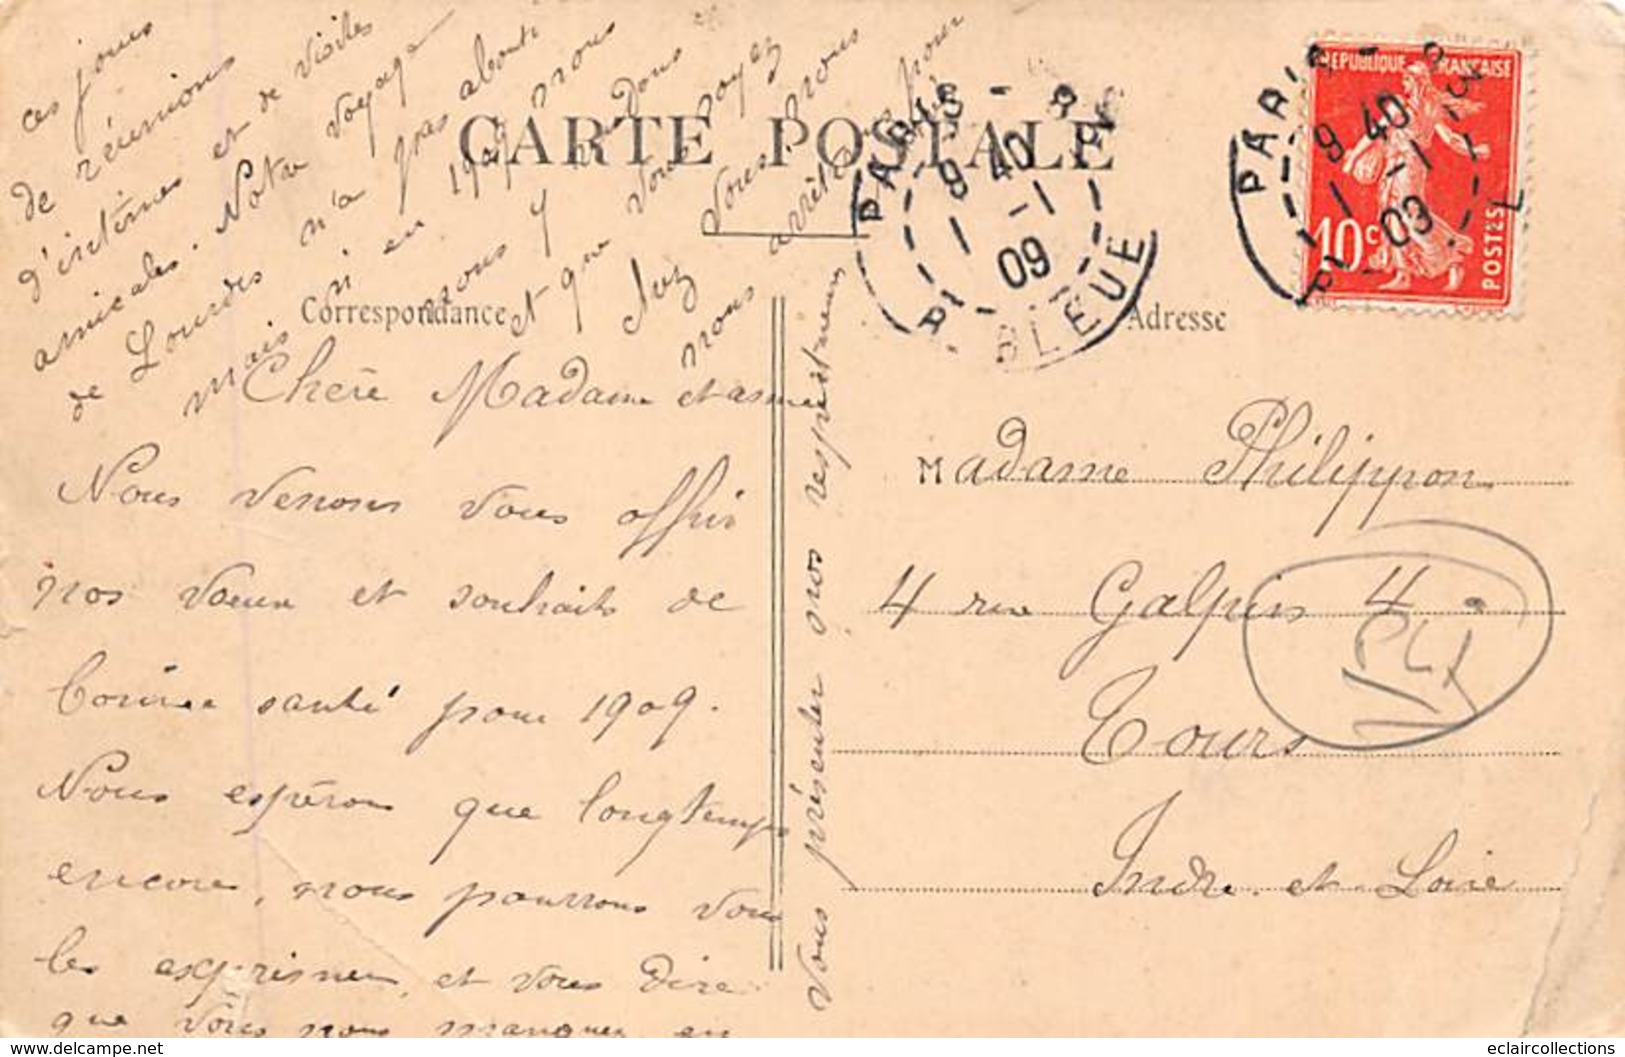 CARTE POSTALE
Correspondance
Adresse
REPUBLIQUE FRANÇAISE
10c
POSTES
PARIS
9 40
1 - 1
09
PARIS
9 40
1 - 1
09
Chère Madame et amie
Nous venons vous offrir
nos voeux et souhaits de
bonne santé pour 1909.
Nous espérons que longtemps
encore, nous pourrons vous
les exprimer, et vous dire
que vous nous manquez en
ces jours
de réunions
d'intimes et de visites
amicales. Notre voyage
de Lourdes n'a pas abouti
mais si en 1909 nous
nous y rendons
et que vous soyez
chez vous, nous
nous arrêterons pour
vous présenter nos respects
Madame Philippon
4 rue Galpin 4.
Tours
Indre et Loire
eclaircollections @ www.delcampe.net